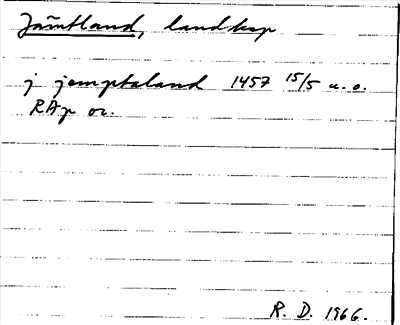 Jämtland, landskap
j jemptaland 1457 15/5 u.o.
RAp or.
R. D. 1966.